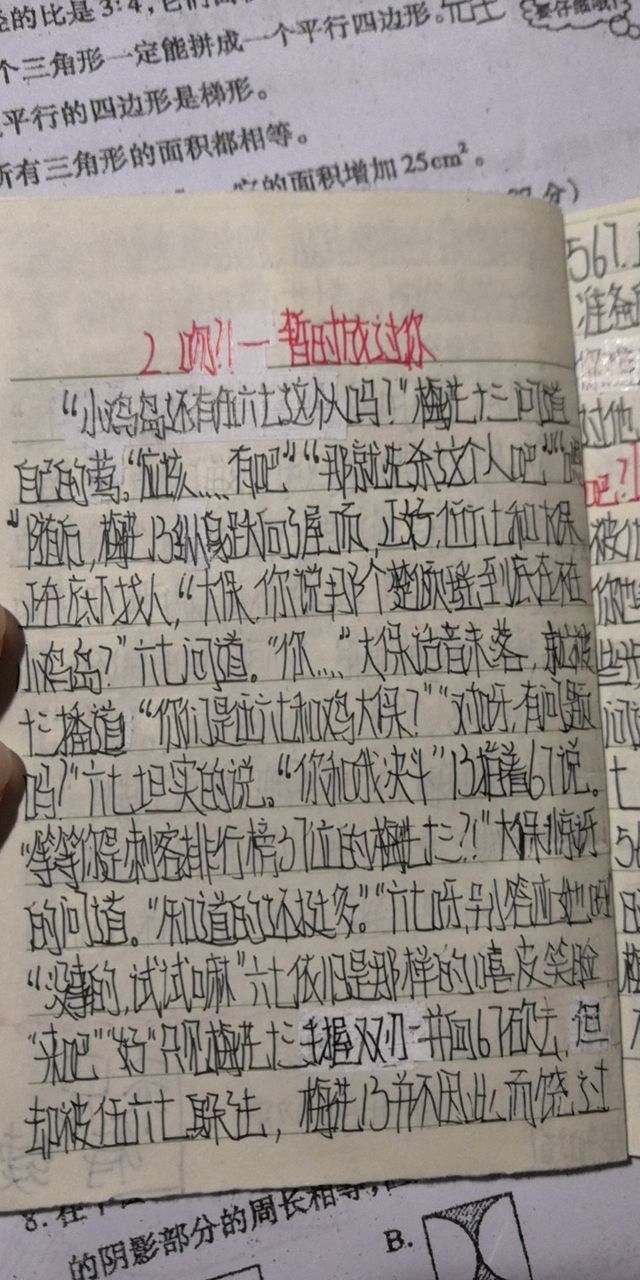 的比是3:4,它们
个三角形一定能拼成一个平行四边形。
平行的四边形是梯形。
所有三角形的面积都相等。
的面积增加25cm²。
分)
2 吻?!一暂时放过你
“小鸡岛还有伍六七这个人吗?”梅花十三问道
自己的莺。“应该....有吧”“那就先杀这个人吧”
随后,梅花13纵身跃向了屋顶,正好,伍六七和大保
正在底下找人,“大保,你说那个整倒到底在不在
小鸡岛?”六七问道。“你....”大保话音未落,就被
十三播道“你们是伍六七和鸡大保?”“对呀,有问题
吗?”六七坦实的说。“你和我决斗”13指着67说。
“等等你是刺客排行榜37位的梅花十三?!”大保惊讶
的问道。“知道的还挺多。”“六七呀,别答应她呀
“没事的,试试嘛”六七依旧是那样的嘻皮笑脸
“来吧”“好”只见梅花十三手握双刃一并向67砍去,但
却被伍六七躲过去,梅花13并不因此而饶过
567.
准备
对他
吧?
被
你也
些
问
七
8.在
的阴影部分的周长相等,
B.